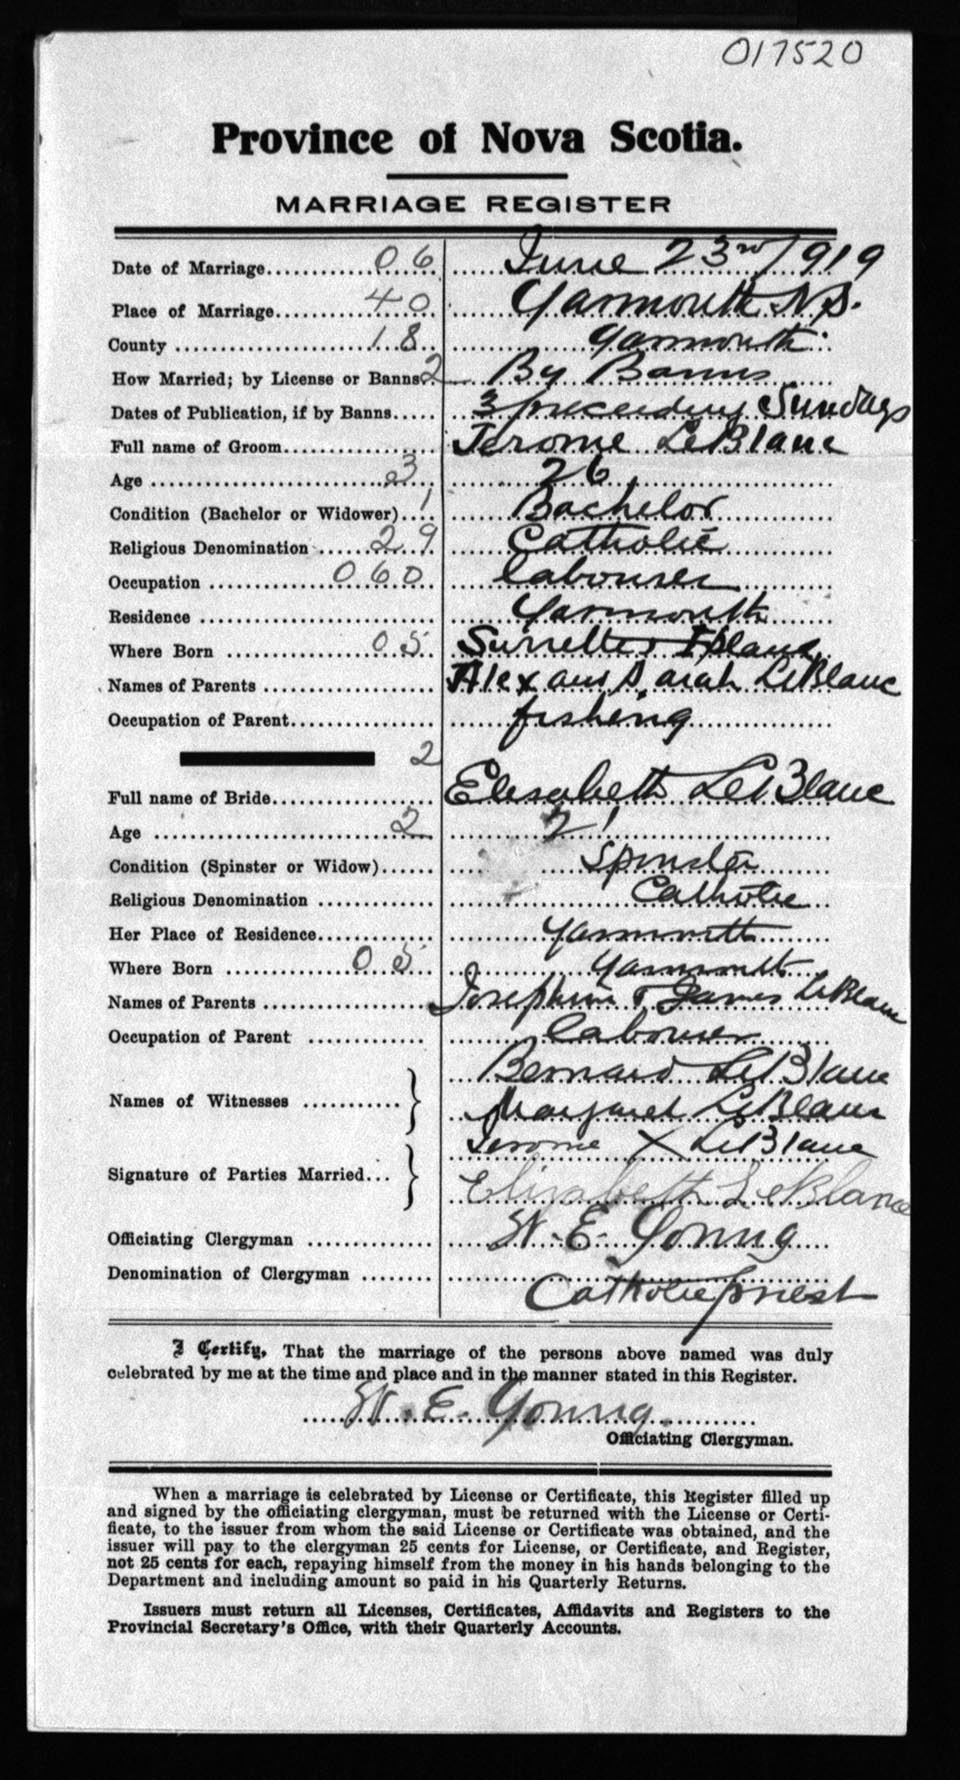 017520
Province of Nova Scotia.
MARRIAGE REGISTER
Date of Marriage 06 June 23rd 1919
Place of Marriage 40 Yarmouth N.S.
County 18 Yarmouth
How Married; by License or Banns 2 By Banns
Dates of Publication, if by Banns 3 preceeding Sundays
Full name of Groom Jerome LeBlanc
Age 3 26
Condition (Bachelor or Widower) 1 Bachelor
Religious Denomination 29 Catholic
Occupation 060 labourer
Residence Yarmouth
Where Born 05 Surrettes Island
Names of Parents Alex and Sarah LeBlanc
Occupation of Parent fishing
2
Full name of Bride Elesabeth LeBlanc
Age 2 21
Condition (Spinster or Widow) Spinster
Religious Denomination Catholic
Her Place of Residence Yarmouth
Where Born 05 Yarmouth
Names of Parents James LeBlanc
Occupation of Parent labourer
Names of Witnesses Bernard LeBlanc
Margaret LeBlanc
Signature of Parties Married Jerome X LeBlanc
Elizabeth LeBlanc
Officiating Clergyman W. E. Young
Denomination of Clergyman Catholic priest
I Certify, That the marriage of the persons above named was duly
celebrated by me at the time and place and in the manner stated in this Register.
W. E. Young
Officiating Clergyman.
When a marriage is celebrated by License or Certificate, this Register filled up
and signed by the officiating clergyman, must be returned with the License or Certi-
ficate, to the issuer from whom the said License or Certificate was obtained, and the
issuer will pay to the clergyman 25 cents for License, or Certificate, and Register,
not 25 cents for each, repaying himself from the money in his hands belonging to the
Department and including amount so paid in his Quarterly Returns.
Issuers must return all Licenses, Certificates, Affidavits and Registers to the
Provincial Secretary's Office, with their Quarterly Accounts.